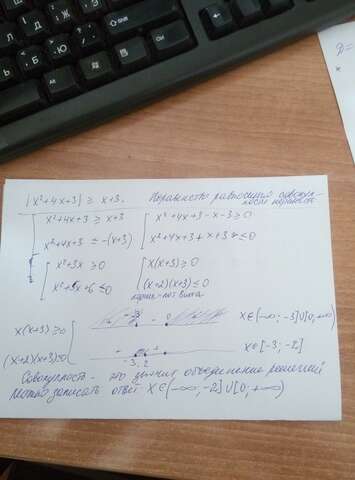 |x²+4x+3| ≥ x+3. Неравенство равносильно совокуп-
ности неравенств
[ x²+4x+3 ≥ x+3 [ x²+4x+3-x-3≥0
x²+4x+3 ≤ -(x+3) x²+4x+3+x+3≤0
[ x²+3x ≥ 0 [ x(x+3)≥0
x²+5x+6≤0 (x+2)(x+3)≤0
x(x+3)≥0 -3 0 x∈(-∞; -3]∪[0; +∞)
(x+2)(x+3)≤0 + - + -3 -2 x∈[-3; -2]
Совокупность - это значит объединение решений
Можно записать ответ x∈(-∞; -2]∪[0; +∞)